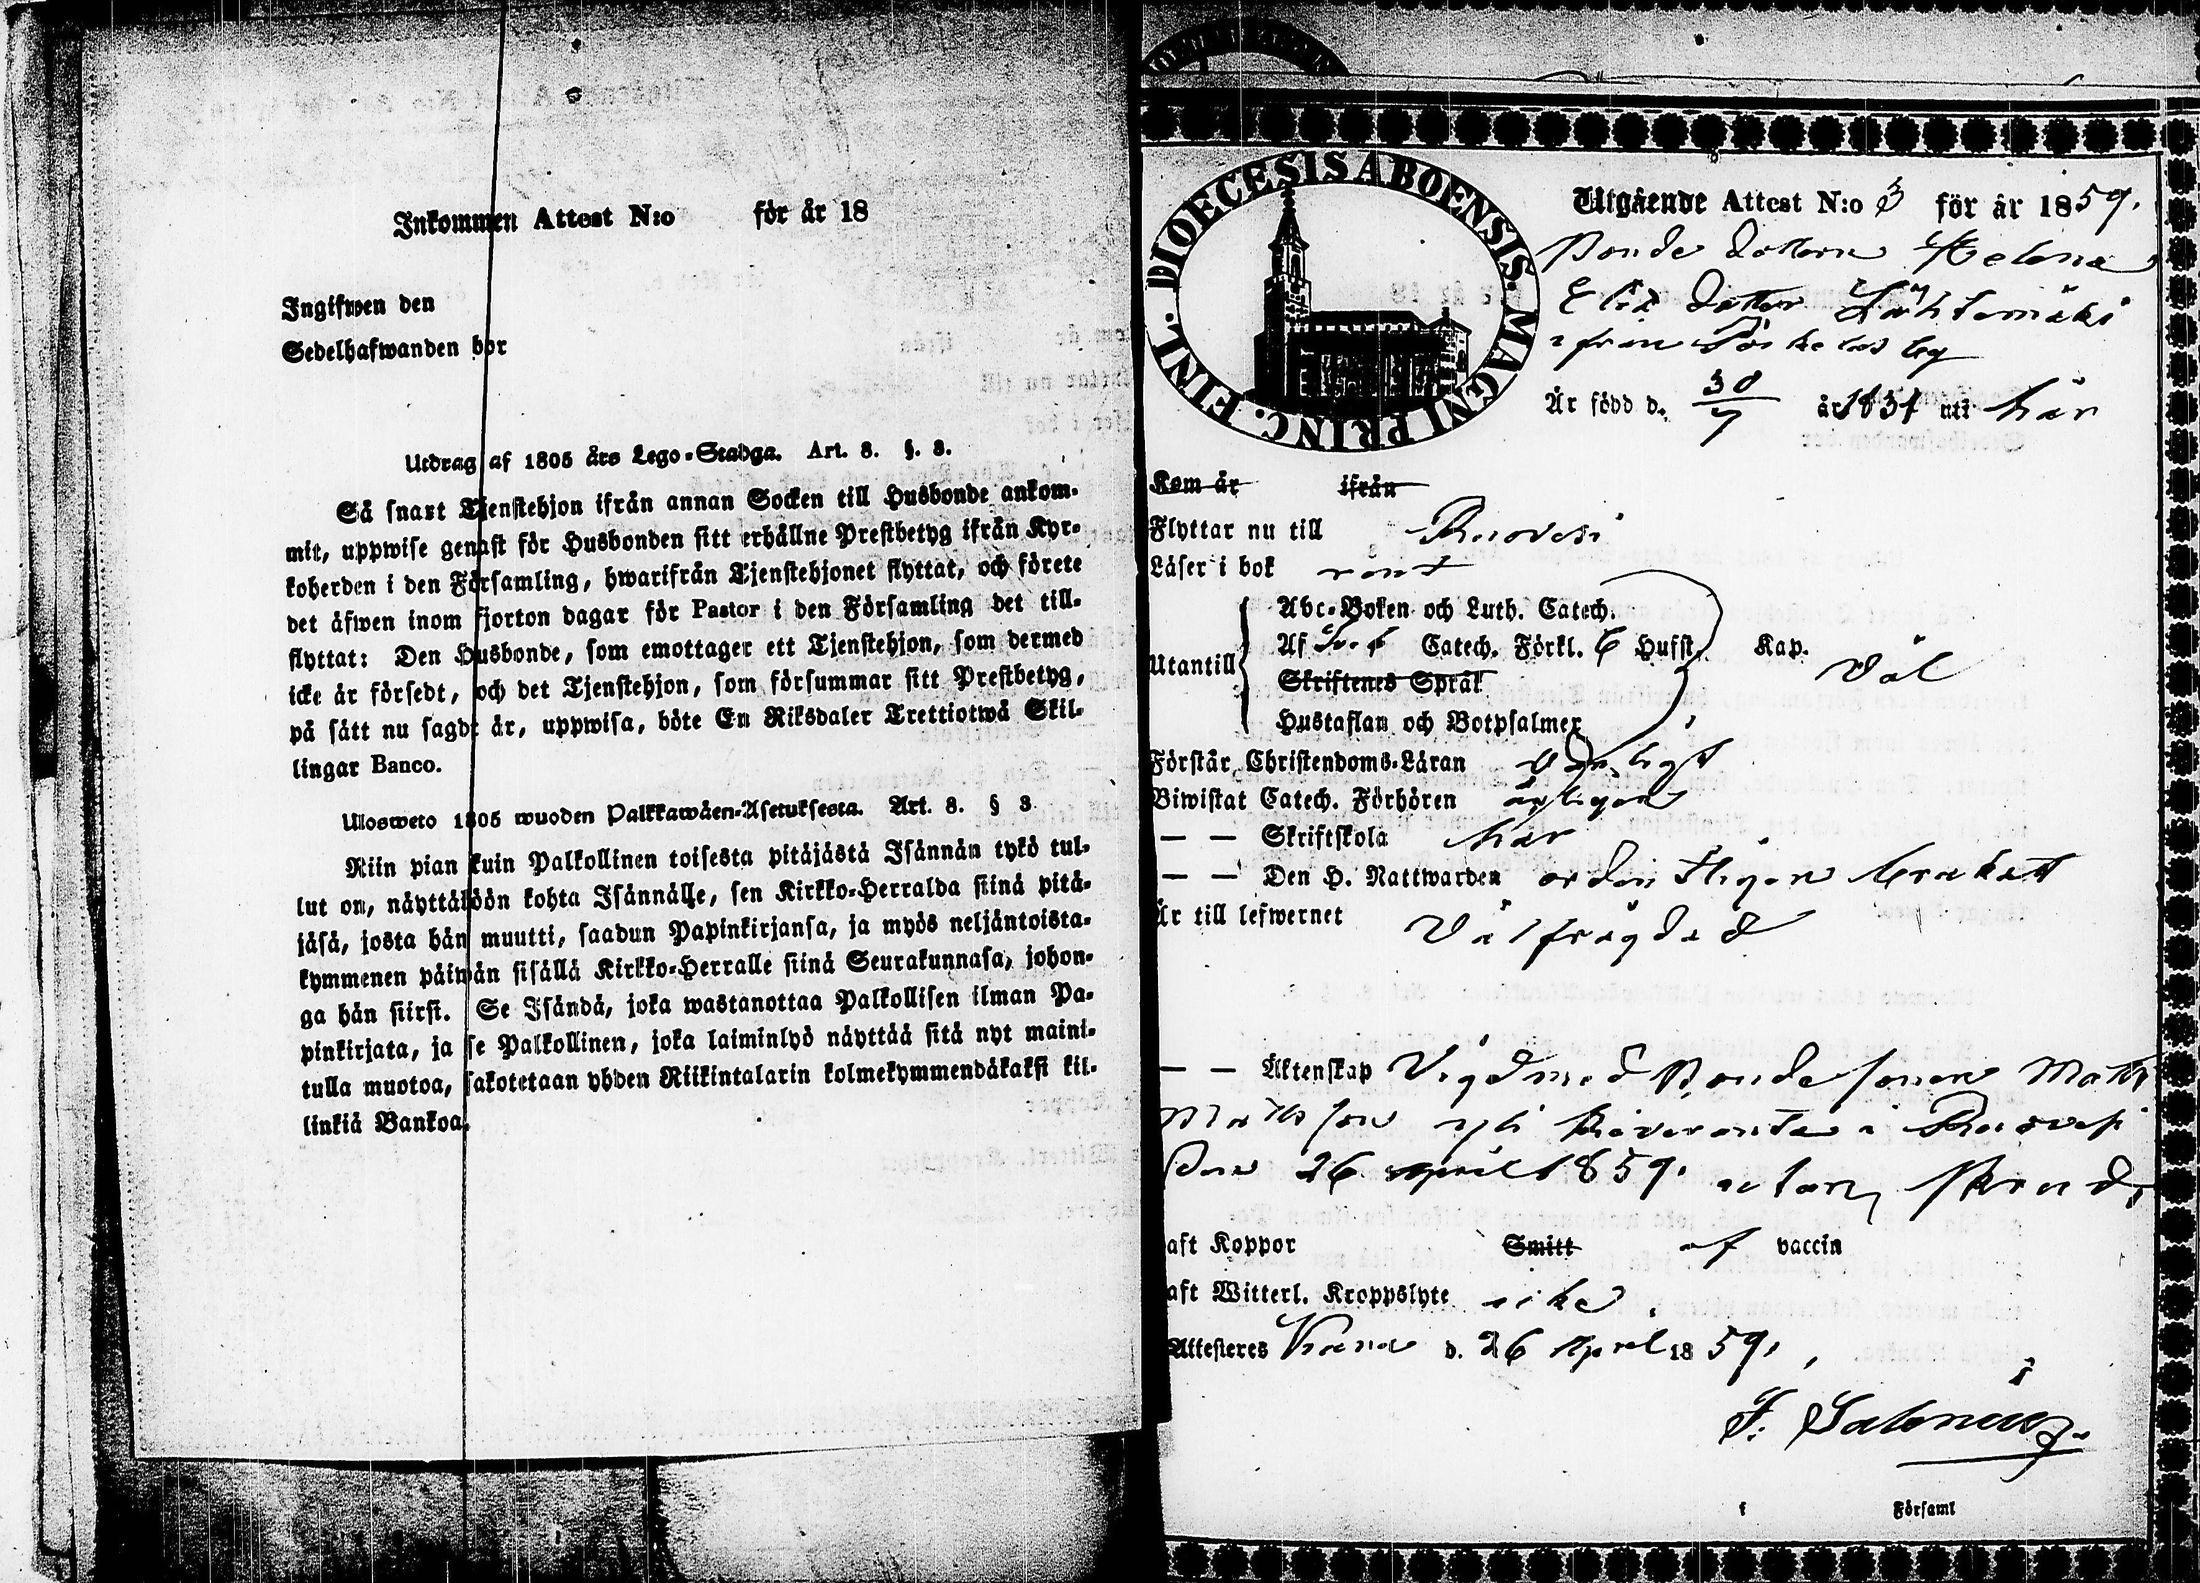 Inkommen Attest N:o för år 18
Ingifwen den
Sedelhafwanden bor
Utdrag af 1805 års Lego-Stadga. Art. 8. §. 3.
Så snart Tjenstehjon ifrån annan Socken till Husbonde ankom-
mit, uppwise genast för Husbonden sitt erhållne Prestbetyg ifrån Kyr-
koherden i den Församling, hwarifrån Tjenstehjonet flyttat, och förete
det äfwen inom fjorton dagar för Pastor i den Församling det till-
flyttat: Den Husbonde, som emottager ett Tjenstehjon, som dermed
icke är försedt, och det Tjenstehjon, som försummar sitt Prestbetyg,
på sätt nu sagdt är, uppwisa, böte En Riksdaler Trettiotwå Skil-
lingar Banco.
Ulosweto 1805 wuoden Palkkawäen-Asetuksesta. Art. 8. § 3.
Niin pian kuin Palkollinen toisesta pitäjästä Isännän tykö tul-
lut on, näyttäköön kohta Isännälle, sen Kirkko-Herralda siinä pitä-
jäsä, josta hän muutti, saadun Papinkirjansa, ja myös neljäntoista-
kymmenen päiwän sisällä Kirkko-Herralle siinä Seurakunnasa, johon-
ga hän siirsi. Se Isändä, joka wastanottaa Palkollisen ilman Pa-
pinkirjata, ja se Palkollinen, joka laiminlyö näyttää sitä nyt maini-
tulla muotoa, sakotetaan yhden Riikintalarin kolmekymmendäkaksi kil-
linkiä Bankoa.
DIOECESIS ABOENSIS. MAGNI PRINC. FINL.
Utgående Attest N:o 3 för år 1859.
Bonde dottern Helena
dotter Lähtemäki
ifrån by
Är född d. 30/7 år 1834 uti här
Kom år ifrån
Flyttar nu till Ruovesi
Läser i bok rent
Utantill
Abc-Boken och Luth. Catech.
Af Sv. Catech. Förkl. 6 Hufst. Kap. väl
Skriftenes Språk
Hustaflan och Botpsalmer
Förstår Christendoms-Läran
Biwistat Catech. Förhören årligen
— — Skriftskola här
— — Den H. Nattwarden ordentligen brukat
Är till lefwernet Välfrägdad
— — Äktenskap Vigd med Bonde sonen Matts
Mattsson i Ruovesi
den 26 april 1859. utan
aft Koppor Smitt af vaccin
aft Witterl. Kroppslyte icke.
Attesteres d. 26 April 1859.
F. Salenius
f Församl